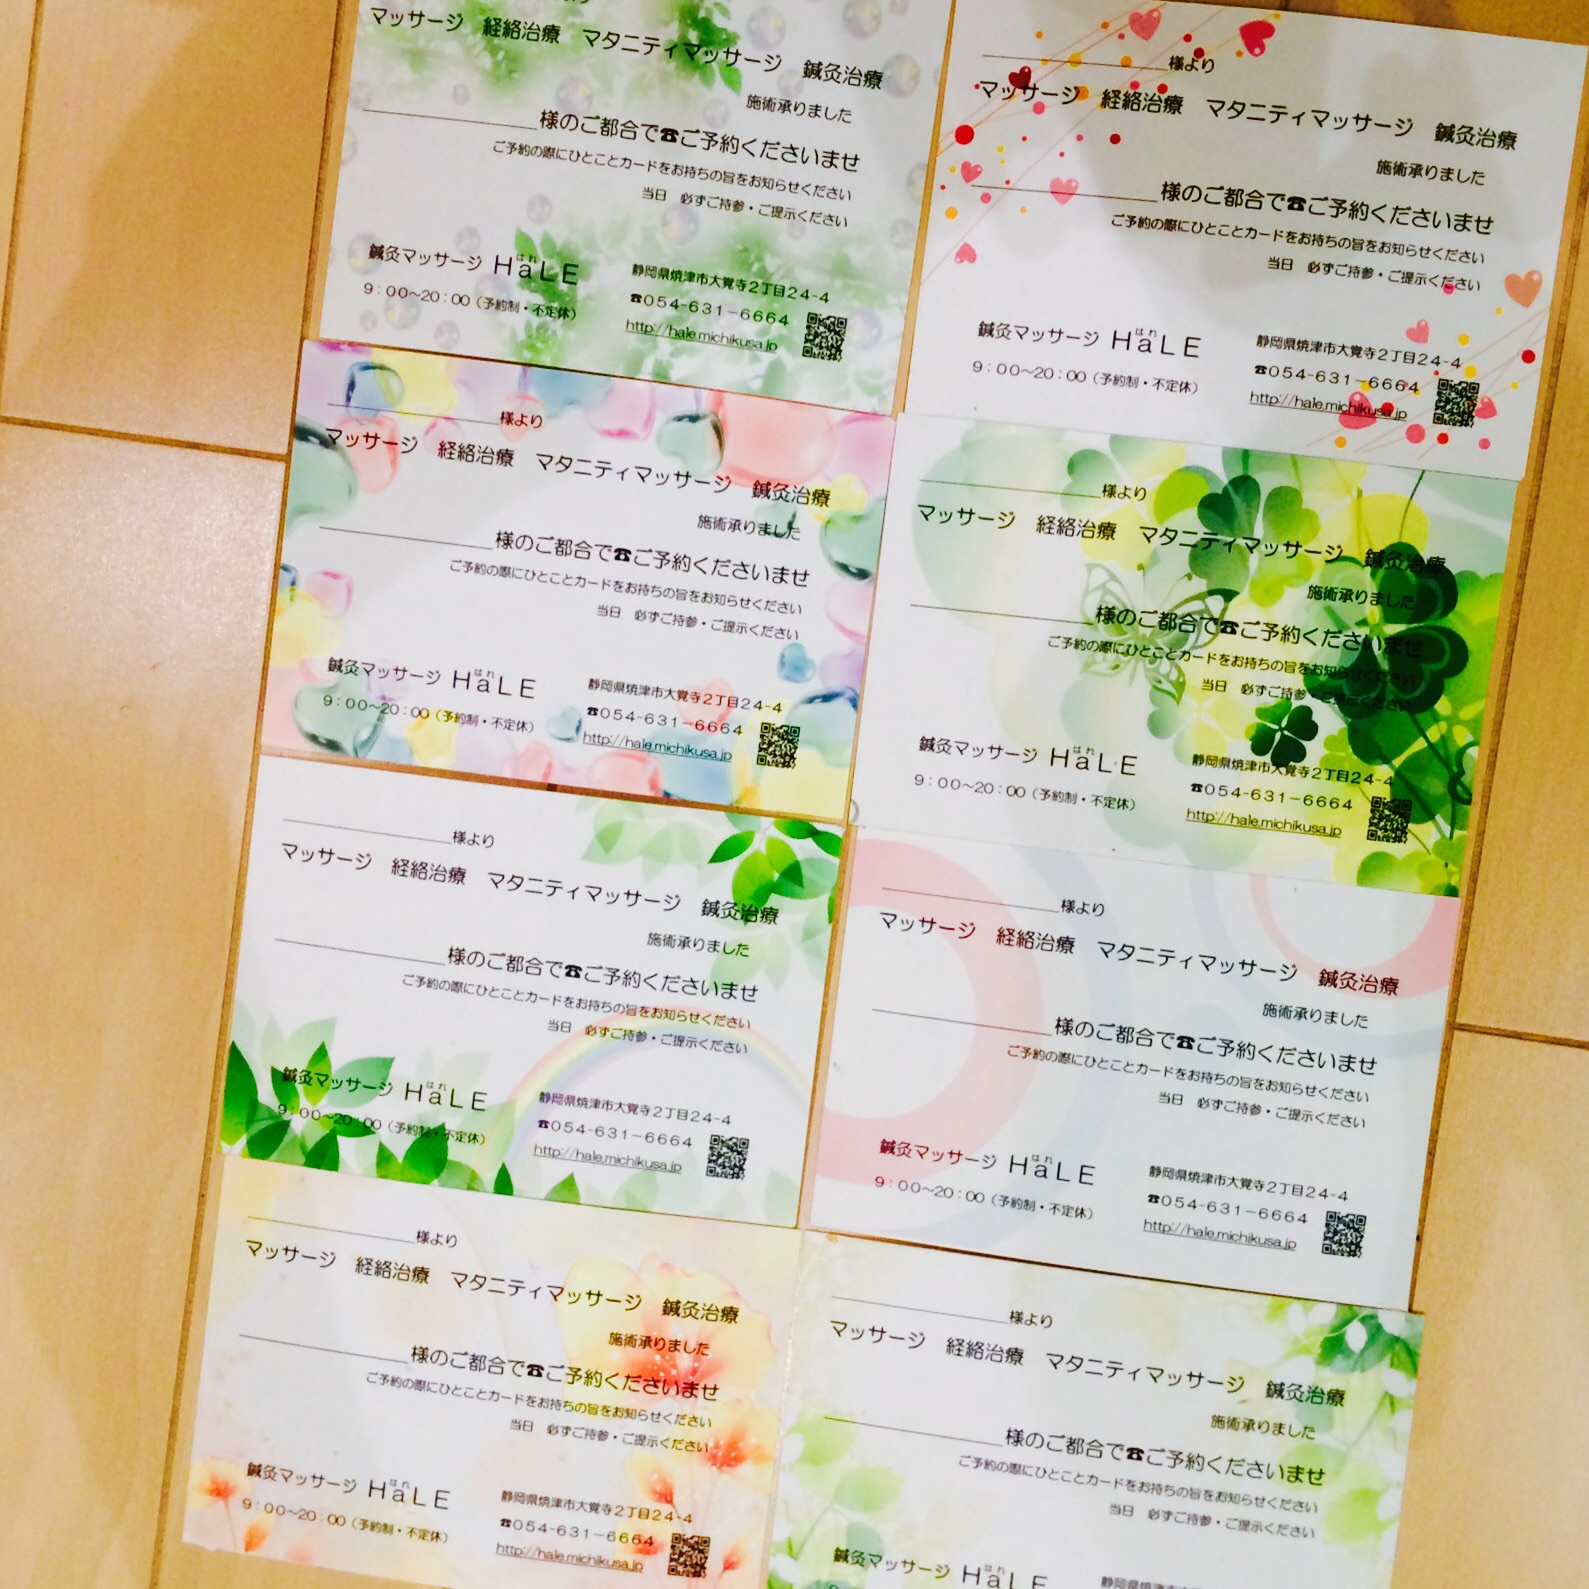 様より
マッサージ 経絡治療 マタニティマッサージ 鍼灸治療
施術承りました
様のご都合で☎ご予約くださいませ
ご予約の際にひとことカードをお持ちの旨をお知らせください
当日 必ずご持参・ご提示ください
鍼灸マッサージ HaLE
はれ
9：00～20：00（予約制・不定休）
静岡県焼津市大覚寺2丁目24-4
☎054-631-6664
http://hale.michikusa.jp
様より
マッサージ 経絡治療 マタニティマッサージ 鍼灸治療
施術承りました
様のご都合で☎ご予約くださいませ
ご予約の際にひとことカードをお持ちの旨をお知らせください
当日 必ずご持参・ご提示ください
鍼灸マッサージ HaLE
はれ
9：00～20：00（予約制・不定休）
静岡県焼津市大覚寺2丁目24-4
☎054-631-6664
http://hale.michikusa.jp
様より
マッサージ 経絡治療 マタニティマッサージ 鍼灸治療
施術承りました
様のご都合で☎ご予約くださいませ
ご予約の際にひとことカードをお持ちの旨をお知らせください
当日 必ずご持参・ご提示ください
鍼灸マッサージ HaLE
はれ
9：00～20：00（予約制・不定休）
静岡県焼津市大覚寺2丁目24-4
☎054-631-6664
http://hale.michikusa.jp
様より
マッサージ 経絡治療 マタニティマッサージ 鍼灸治療
施術承りました
様のご都合で☎ご予約くださいませ
ご予約の際にひとことカードをお持ちの旨をお知らせください
当日 必ずご持参・ご提示ください
鍼灸マッサージ HaLE
はれ
9：00～20：00（予約制・不定休）
静岡県焼津市大覚寺2丁目24-4
☎054-631-6664
http://hale.michikusa.jp
様より
マッサージ 経絡治療 マタニティマッサージ 鍼灸治療
施術承りました
様のご都合で☎ご予約くださいませ
ご予約の際にひとことカードをお持ちの旨をお知らせください
当日 必ずご持参・ご提示ください
鍼灸マッサージ HaLE
はれ
9：00～20：00（予約制・不定休）
静岡県焼津市大覚寺2丁目24-4
☎054-631-6664
http://hale.michikusa.jp
様より
マッサージ 経絡治療 マタニティマッサージ 鍼灸治療
施術承りました
様のご都合で☎ご予約くださいませ
ご予約の際にひとことカードをお持ちの旨をお知らせください
当日 必ずご持参・ご提示ください
鍼灸マッサージ HaLE
はれ
9：00～20：00（予約制・不定休）
静岡県焼津市大覚寺2丁目24-4
☎054-631-6664
http://hale.michikusa.jp
様より
マッサージ 経絡治療 マタニティマッサージ 鍼灸治療
施術承りました
様のご都合で☎ご予約くださいませ
ご予約の際にひとことカードをお持ちの旨をお知らせください
当日 必ずご持参・ご提示ください
鍼灸マッサージ HaLE
はれ
9：00～20：00（予約制・不定休）
静岡県焼津市大覚寺2丁目24-4
☎054-631-6664
http://hale.michikusa.jp
様より
マッサージ 経絡治療 マタニティマッサージ 鍼灸治療
施術承りました
様のご都合で☎ご予約くださいませ
ご予約の際にひとことカードをお持ちの旨をお知らせください
当日 必ずご持参・ご提示ください
鍼灸マッサージ HaLE
はれ